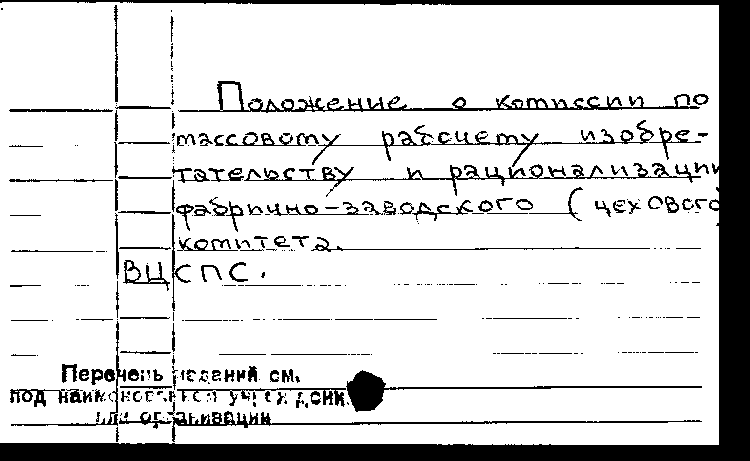 Положение о комиссии по
массовому рабочему изобре-
тательству и рационализации
фабрично-заводского (цехового
комитета.
ВЦСПС.
Перечень изданий см.
под наименованием учрежден.
или организации